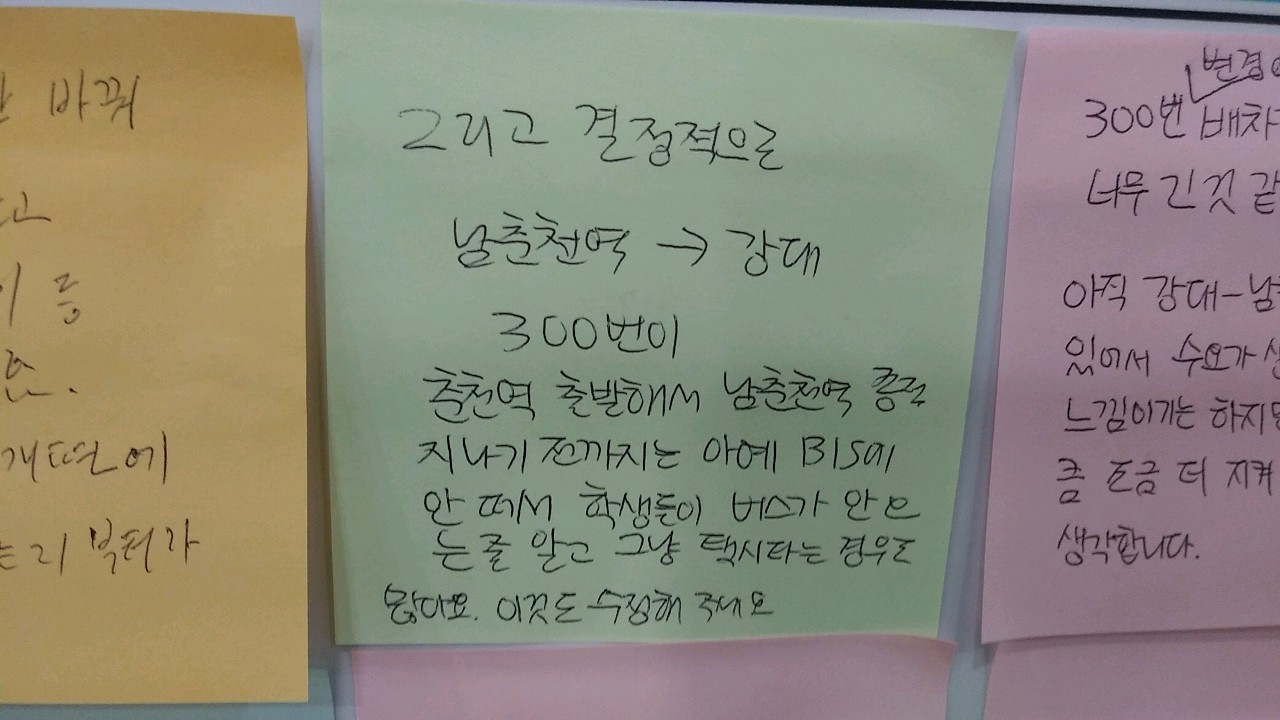 바꿔
고
이 등
요.
개편에
부터가
그리고 결정적으로
남춘천역 → 강대
300번이
춘천역 출발해서 남춘천역 종점
지나기 전까지는 아예 BIS에
안 떠서 학생들이 버스가 안 오
는줄 알고 그냥 택시타는 경우도
많아요. 이것도 수정해 주세요
변경
300번 배차
너무 긴것 같
아직 강대-남
있어서 수요가
느낌이기는 하지만
좀 조금 더 지켜
생각합니다.